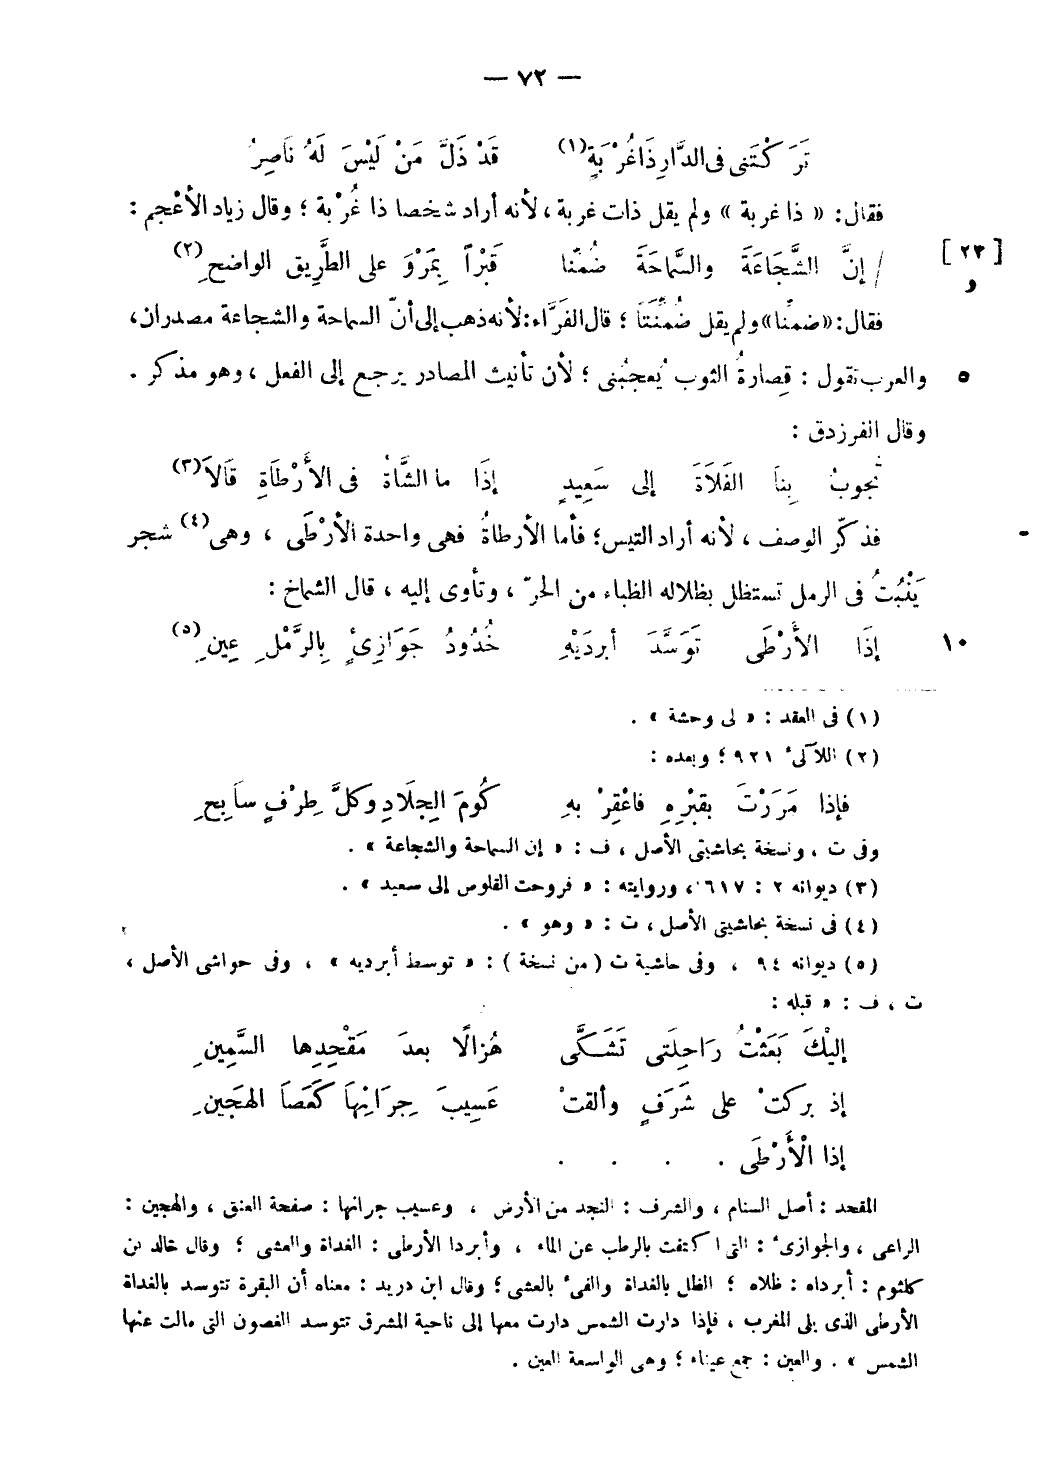 — ٧٢ —
تَرَكْتَنى فى الدَّارِ ذَا غُرْبَةٍ(١) قَدْ ذَلَّ مَنْ لَيْسَ لَهُ نَاصِرُ
فقال: « ذا غربة » ولم يقل ذات غربة ، لأنه أراد شخصا ذا غُرْبة ؛ وقال زياد الأعْجم :
[ ٢٣ و ] / إنَّ الشَّجَاعَةَ والسَّماحَةَ ضُمِّنا قَبْراً بِمَرْوَ على الطَّرِيق الواضحِ(٢)
فقال: «ضمنَّا» ولم يقل ضُمِّنَتَا ؛ قال الفَرَّاء: لأنه ذهب إلى أنّ السماحة والشجاعة مصدران،
٥ والعرب تقول : قِصارةُ الثوب يُعجبُنى ؛ لأن تأنيث المصادر يرجع إلى الفعل ، وهو مذكر .
وقال الفرزدق :
تَجوبُ بِنَا الفَلَاةَ إلى سَعِيدٍ إذَا ما الشَّاةُ فى الأَرْطَاةِ قَالاَ(٣)
فذكّر الوصف ، لأنه أراد التيس؛ فأما الأرطاةُ فهى واحدة الأرْطَى ، وهى(٤) شجر
يَنْبُتُ فى الرمل تستظل بظلاله الظباء من الحرّ ، وتأوى إليه ، قال الشماخ :
١٠ إذَا الأَرْطَى تَوَسَّدَ أبردَيْهِ خُدُودُ جَوَازِئٍ بِالرَّمْلِ عِينِ(٥)
(١) فى العقد : « لى وحشة » .
(٢) اللآلئ ٩٢١ ؛ وبعده :
فإذا مَرَرْتَ بقبْرِهِ فاعْقِرْ بهِ كُومَ الجِلَادِ وكلَّ طِرْفٍ سَابِحِ
وفى ت ، ونسخة بحاشيتى الأصل ، ف : « إن السماحة والشجاعة » .
(٣) ديوانه ٢ : ٦١٧ ، وروايته : « فروحت القلوص إلى سعيد » .
(٤) فى نسخة بحاشيتى الأصل ، ت : « وهو » .
(٥) ديوانه ٩٤ ، وفى حاشية ت ( من نسخة ) : « توسط أبرديه » ، وفى حواشى الأصل ،
ت ، ف : « قبله :
إليْكَ بَعَثْتُ رَاحِلَتى تَشَكَّى هُزالًا بعدَ مَقْحِدِها السَّمِينِ
إذ بركتْ على شَرَفٍ وألقتْ عَسِيبَ جِرَانِهاَ كَعَصاَ الهَجِينِ
إذا الْأَرْطَى . . . .
المقحد : أصل السنام ، والشرف : النجد من الأرض ، وعسيب جرانها : صفحة العنق ، والهجين :
الراعى ، والجوازئ : التى اكتفت بالرطب عن الماء ، وأبردا الأرطى : الغداة والعشى ؛ وقال خالد بن
كلثوم : أبرداه : ظلاه ؛ الظل بالغداة والفىء بالعشى ؛ وقال ابن دريد : معناه أن البقرة تتوسد بالغداة
الأرطى الذى يلى المغرب ، فإذا دارت الشمس دارت معها إلى ناحية المشرق تتوسد الغصون التى مالت عنها
الشمس » . والعين : جمع عيناء ؛ وهى الواسعة العين .